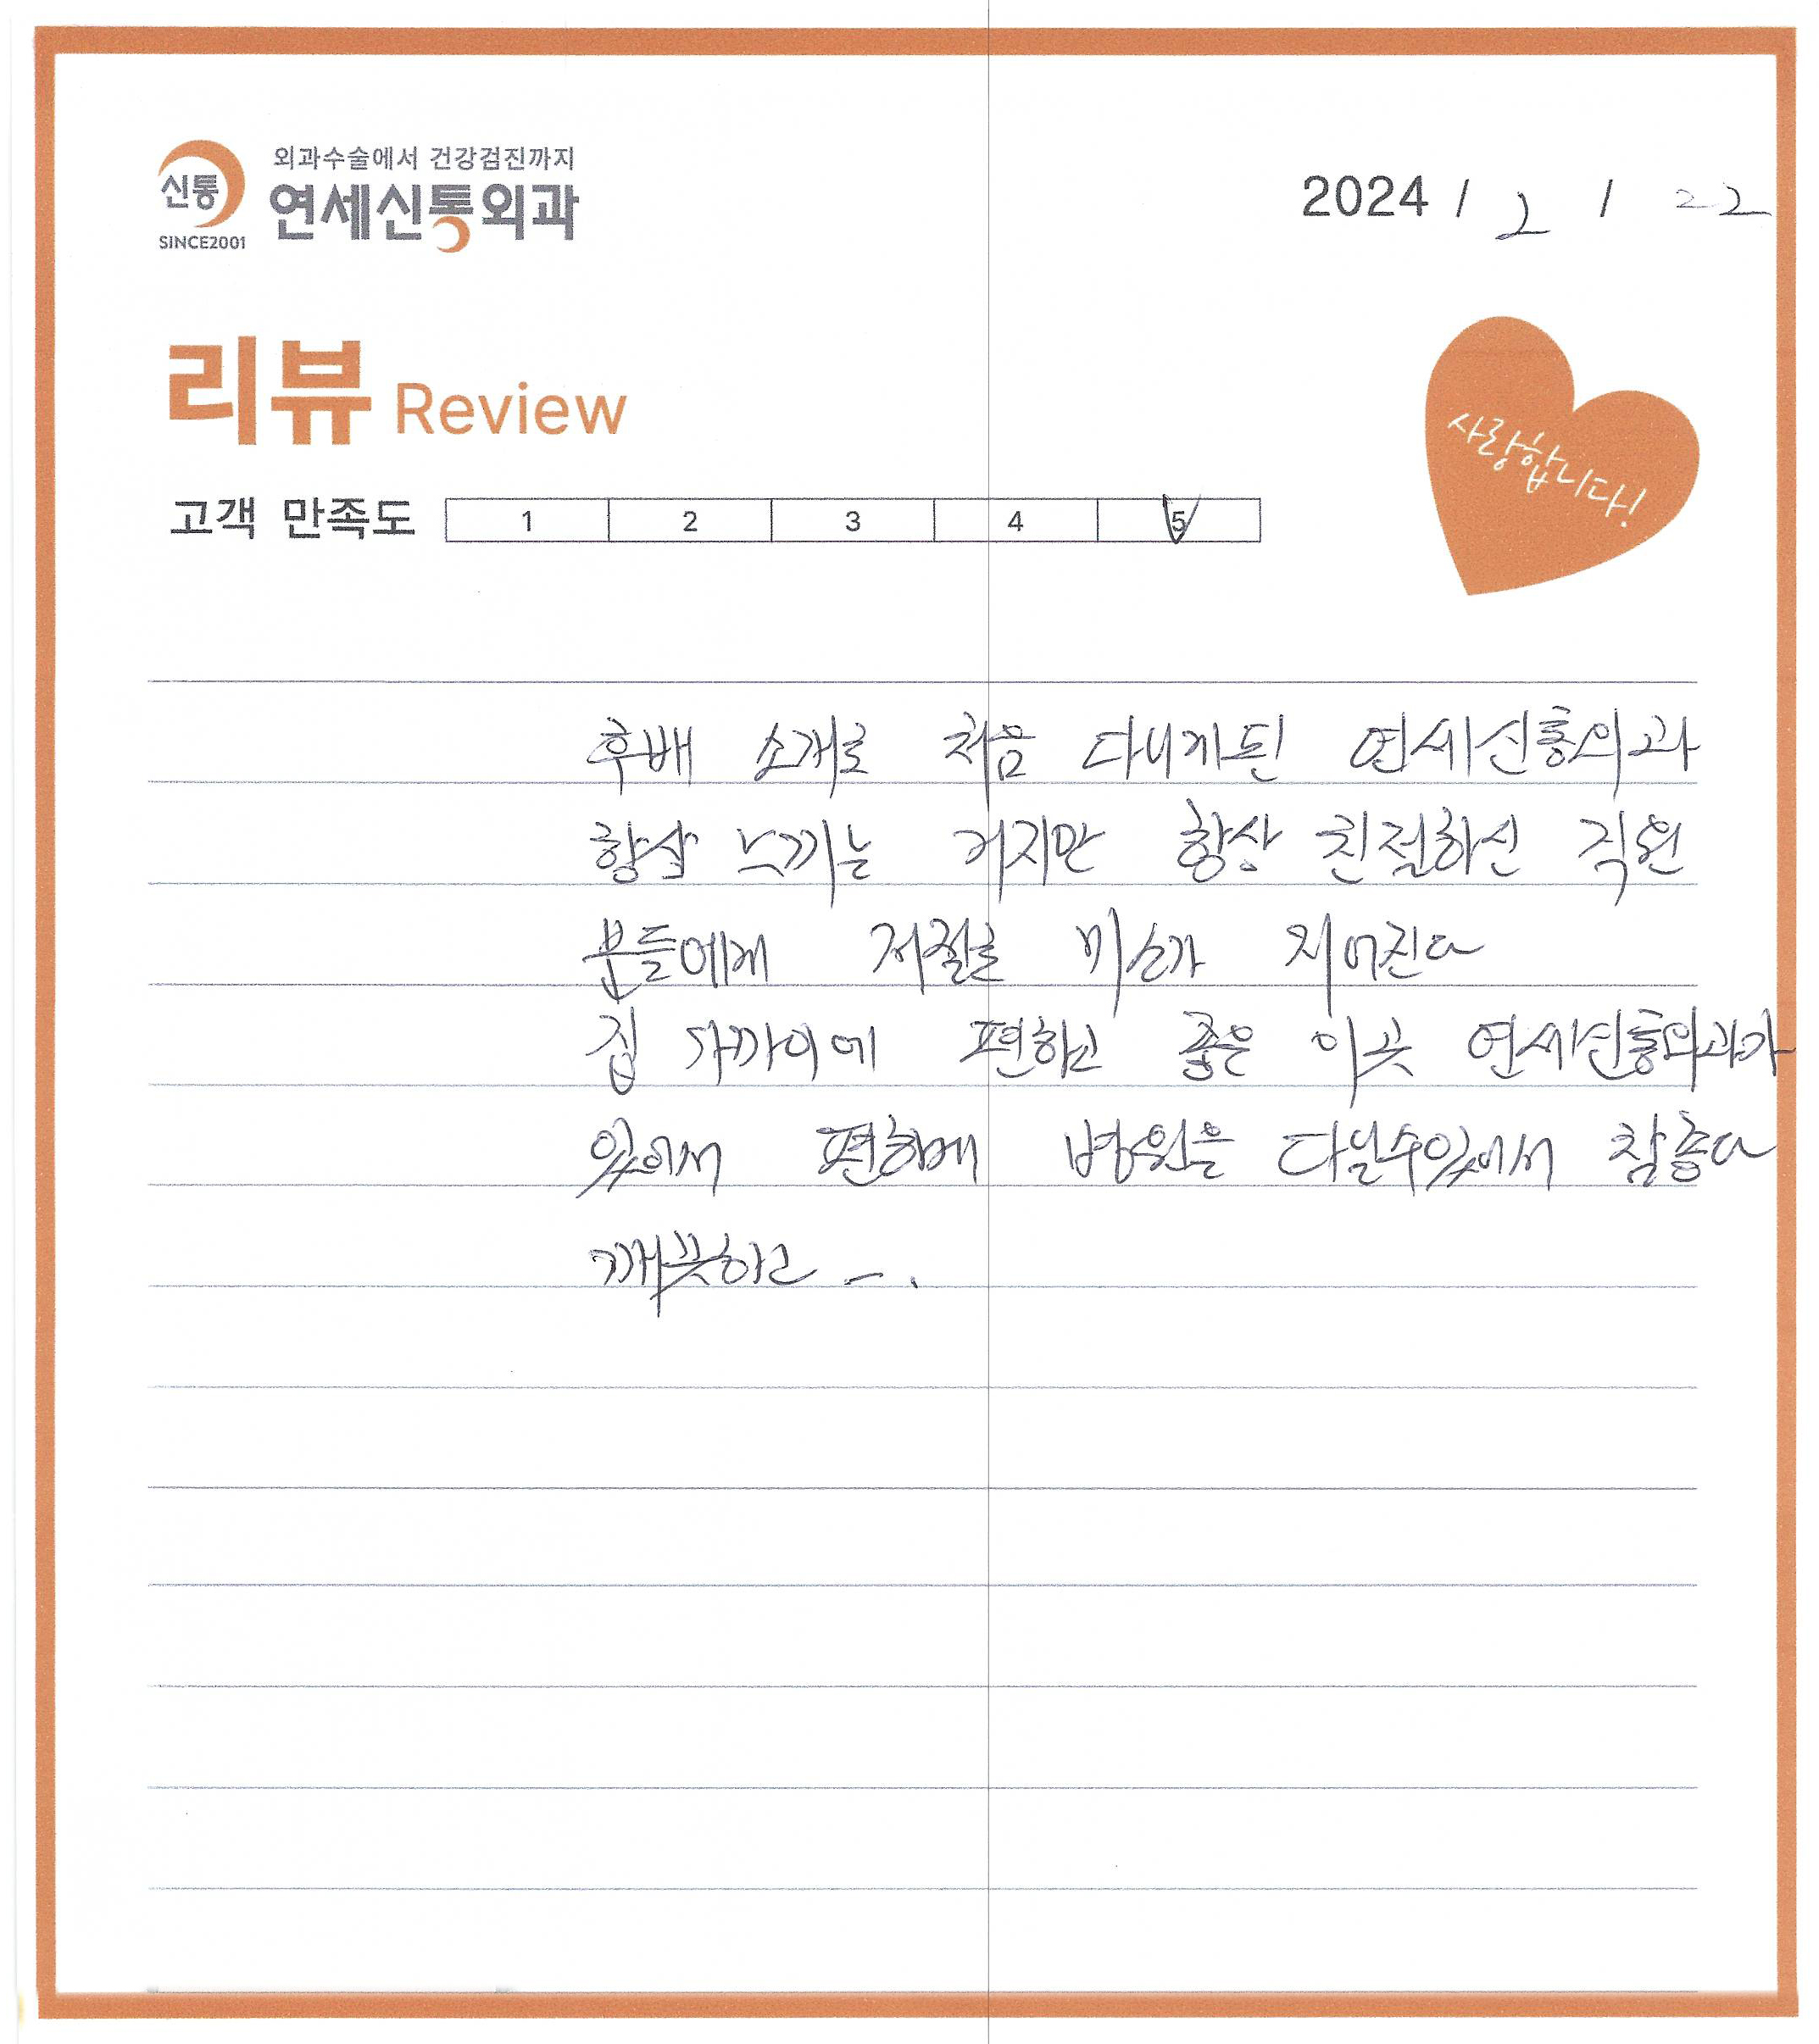 외과수술에서 건강검진까지
신통 연세신통외과
SINCE2001
2024 / 2 / 22
리뷰 Review
사랑합니다!
고객 만족도 1 2 3 4 5
후배 소개로 처음 다니게된 연세신통외과
항상 느끼는 거지만 항상 친절하신 직원
분들에게 저절로 미소가 지어진다
집 가까이에 편하고 좋은 이곳 연세신통외과가
있어서 편하게 병원을 다닐수있어서 참좋다
깨끗하고 -.